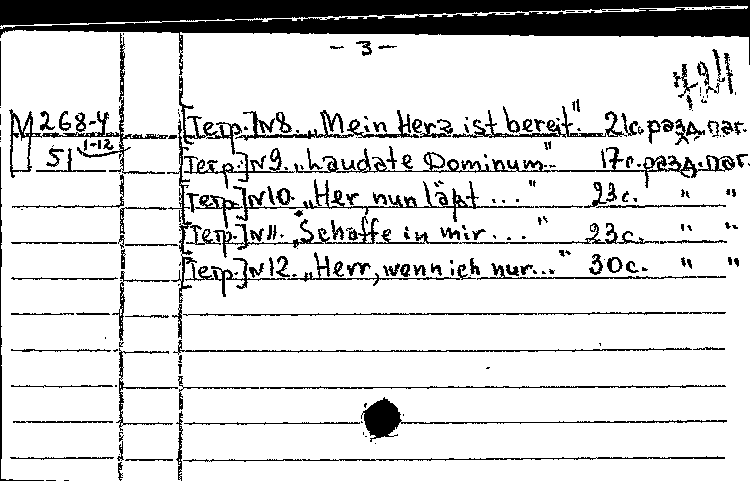 - 3 -
724
М 268-4 [Тетр.] №8. „Mein Herz ist bereit." 21с. разд. паг.
51 1-12 [Тетр.] №9. „Laudate Dominum." 17с. разд. паг.
[Тетр.] №10. „Her, nun läßt ..." 23с. " "
[Тетр.] №11. „Schaffe in mir..." 23с. " "
[Тетр.] №12. „Herr, wenn ich nur..." 30с. " "